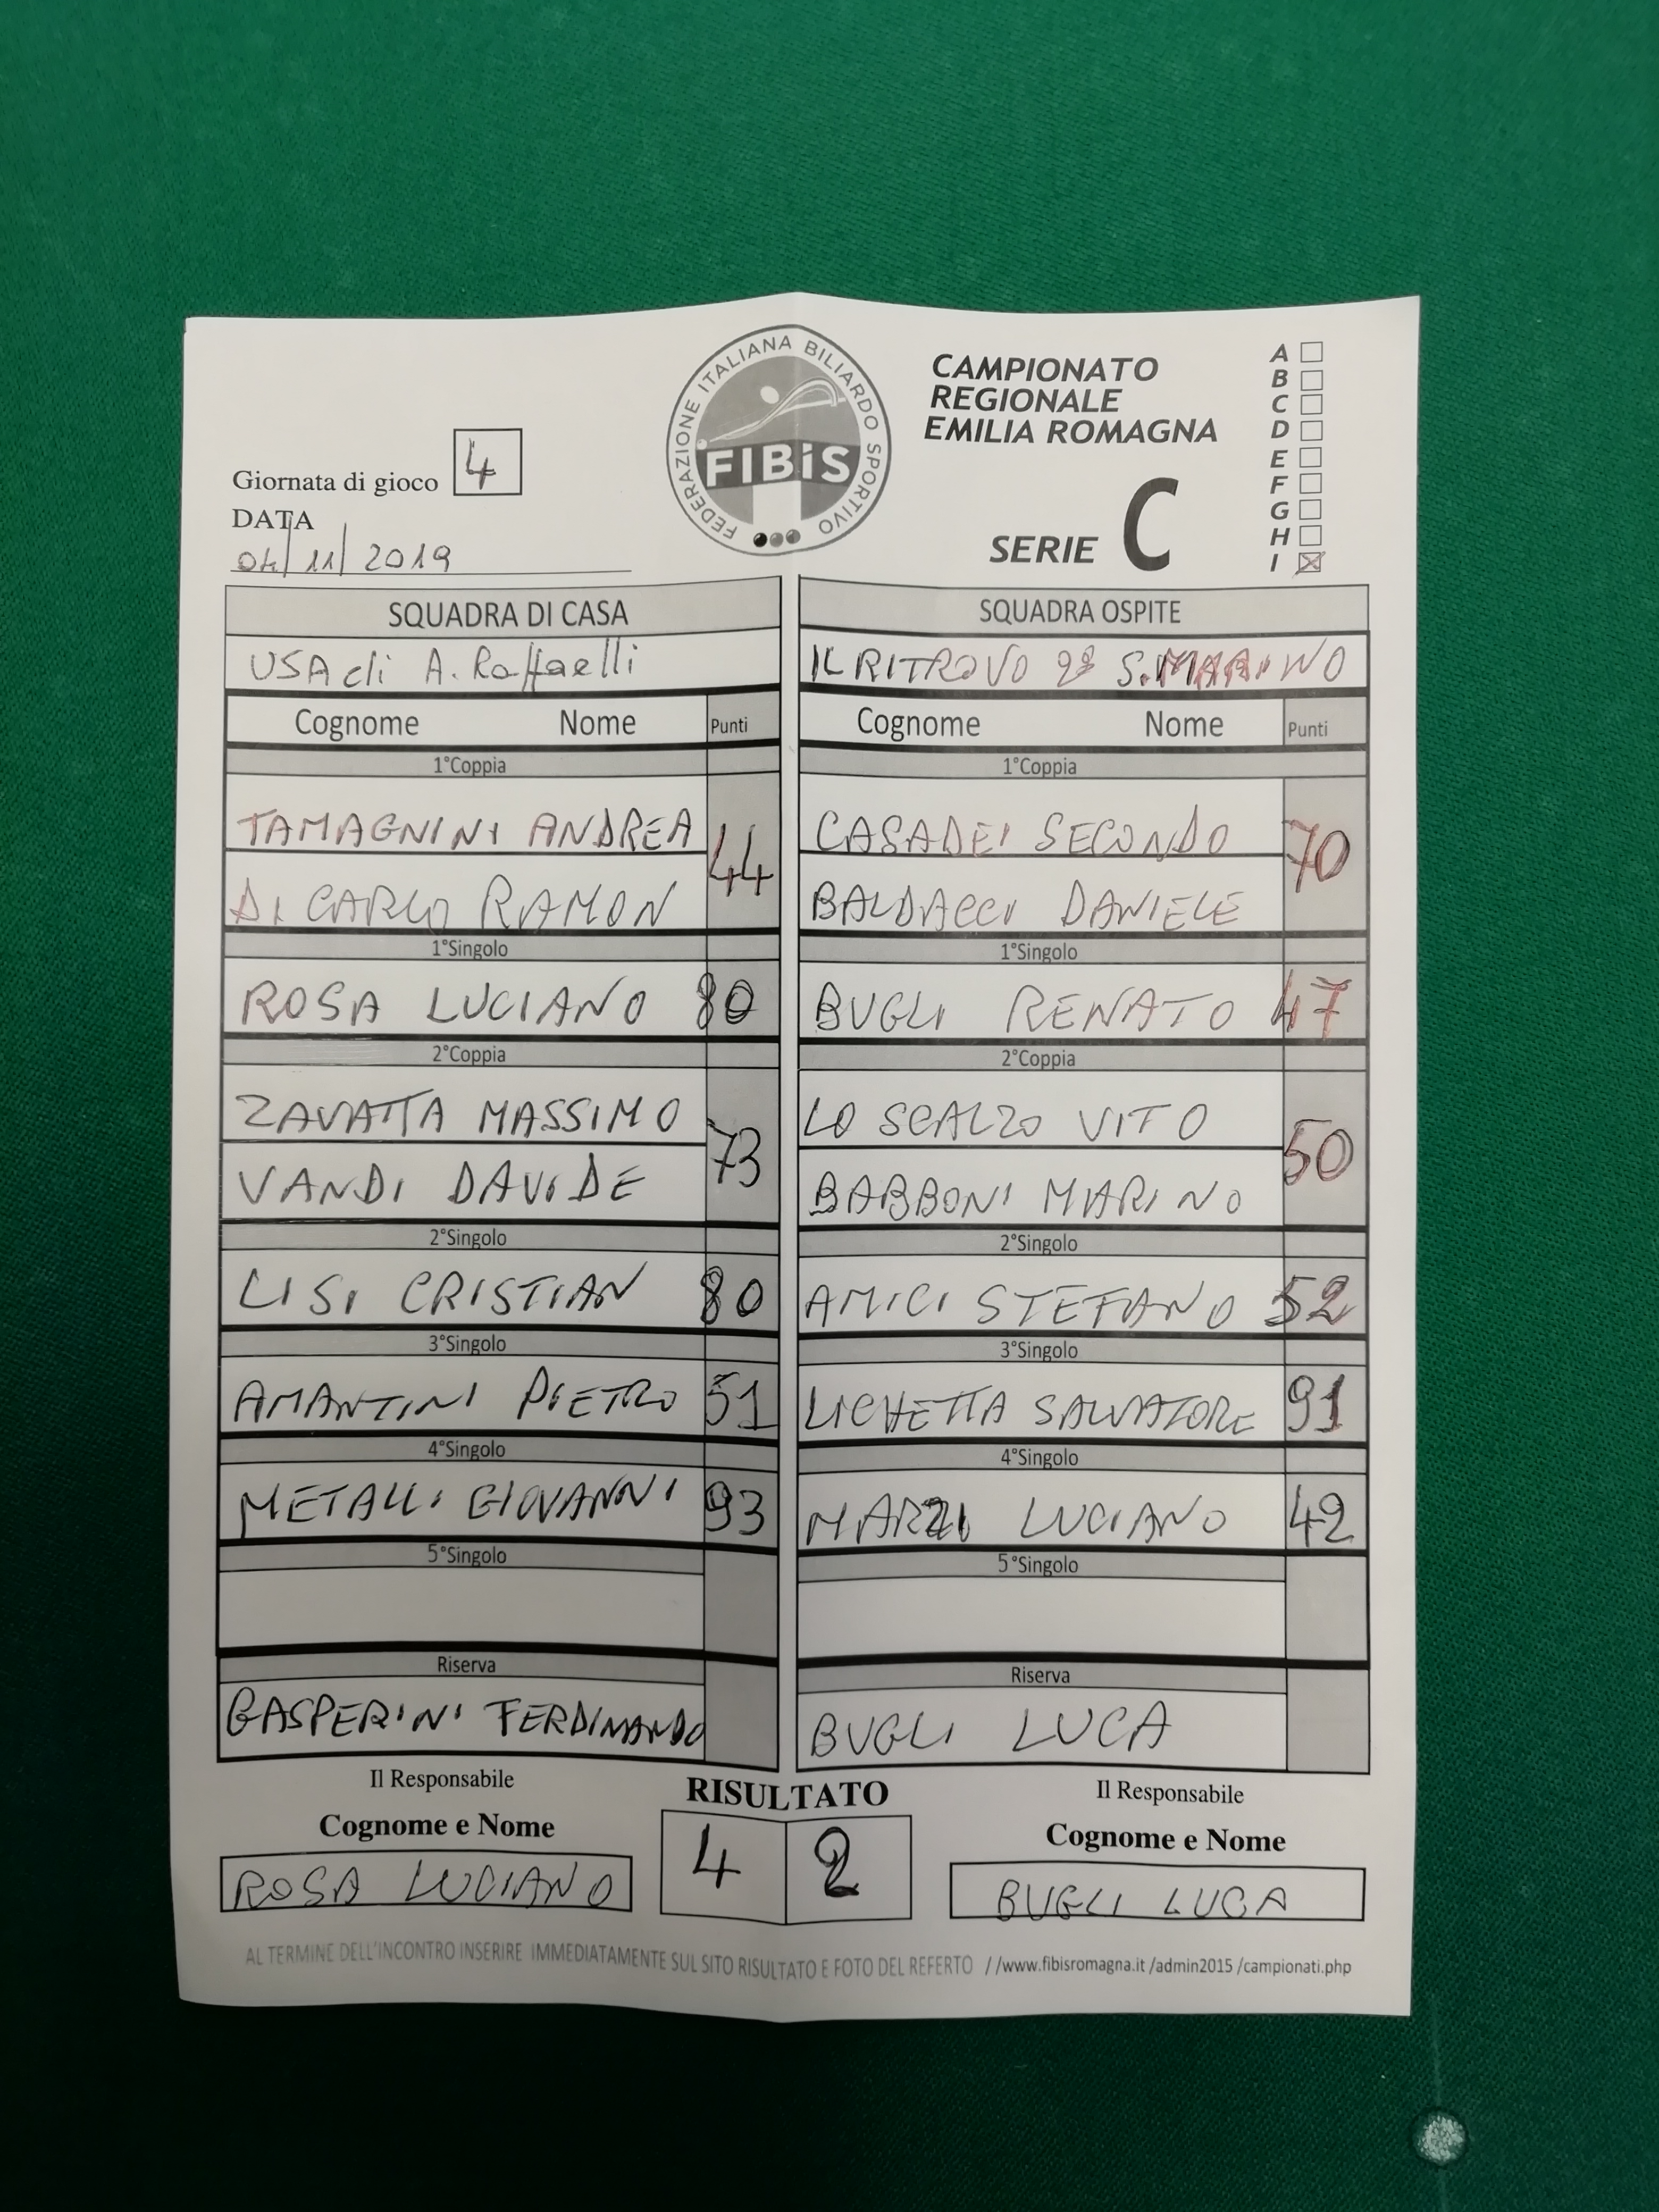 FEDERAZIONE ITALIANA BILIARDO SPORTIVO
FIBiS
CAMPIONATO
REGIONALE
EMILIA ROMAGNA
SERIE C
A
B
C
D
E
F
G
H
I
Giornata di gioco 4
DATA
04/11/2019
SQUADRA DI CASA
USA di A. Raffaelli
Cognome Nome Punti
1°Coppia
TAMAGNINI ANDREA
44
DI CARLO RAMON
1°Singolo
ROSA LUCIANO 80
2°Coppia
ZAVATTA MASSIMO
73
VANDI DAVIDE
2°Singolo
LISI CRISTIAN 80
3°Singolo
AMANTINI PIETRO 51
4°Singolo
METALLI GIOVANNI 93
5°Singolo
Riserva
GASPERINI FERDINANDO
Il Responsabile
Cognome e Nome
ROSA LUCIANO
SQUADRA OSPITE
IL RITROVO S.MARINO
Cognome Nome Punti
1°Coppia
CASADEI SECONDO
70
BALDACCI DANIELE
1°Singolo
BUGLI RENATO 47
2°Coppia
LO SCALZO VITO
50
BABBONI MARINO
2°Singolo
AMICI STEFANO 52
3°Singolo
LICHETTA SALVATORE 91
4°Singolo
MARZI LUCIANO 42
5°Singolo
Riserva
BUGLI LUCA
Il Responsabile
Cognome e Nome
BUGLI LUCA
RISULTATO
4 2
AL TERMINE DELL'INCONTRO INSERIRE IMMEDIATAMENTE SUL SITO RISULTATO E FOTO DEL REFERTO //www.fibisromagna.it /admin2015 /campionati.php